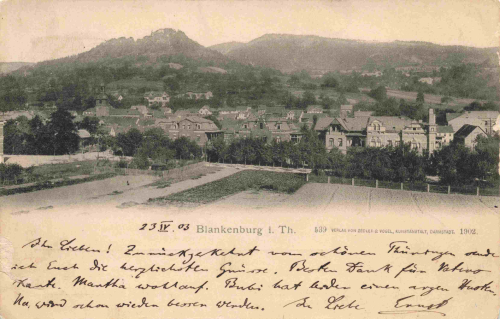 23 IV. 03 Blankenburg i. Th. 539 VERLAG VON ZEDLER & VOGEL, KUNSTANSTALT, DARMSTADT. 1902.
Ihr Lieben! Zurückgekehrt vom schönen Thüringen sende
ich Euch die herzlichsten Grüsse. Besten Dank für
Karte. Martha wohlauf. Bubi hat leider einen argen Husten.
Na, wird schon wieder besser werden. In Liebe Ernst